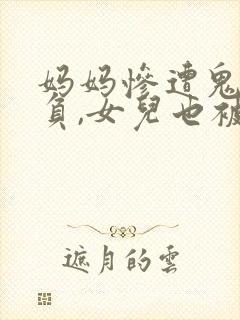 妈妈惨遭鬼
負,女兒也被
遮月的雲